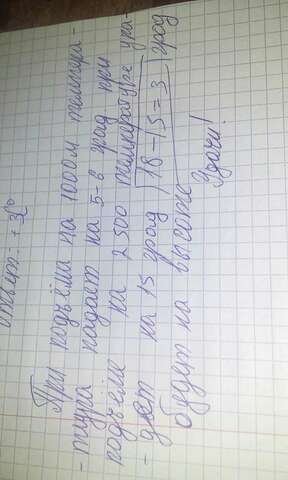 ответ: +3С°
При подъёме на 1000м темпера-
-тура падает на 5-6 град при
подъёме на 2500 температуре упа-
-дёт на 15 град |18-15=3| град
будет на высоте
Удачи!